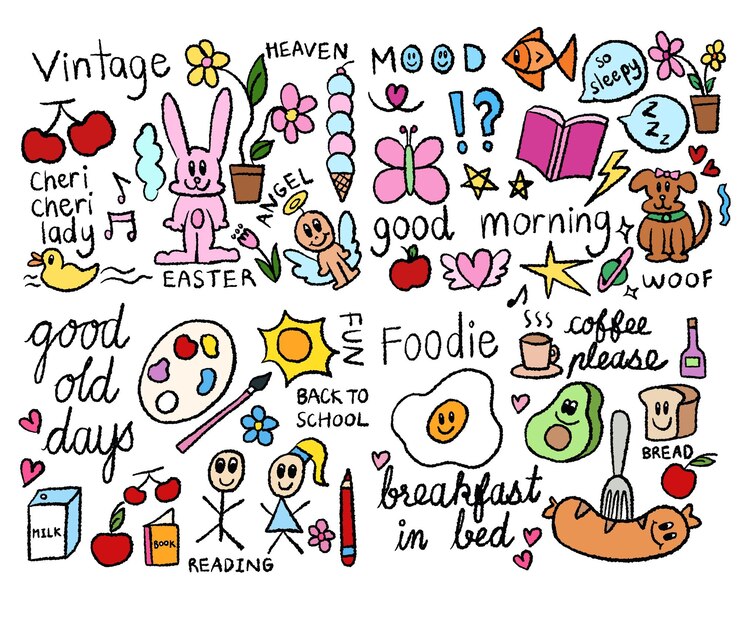 Vintage
HEAVEN
cheri
cheri
lady
ANGEL
EASTER
MOOD
!?
so
sleepy
Z
Z
Z
good morning
WOOF
good
old
days
FUN
BACK TO
SCHOOL
MILK
BOOK
READING
Foodie
coffee
please
BREAD
breakfast
in bed